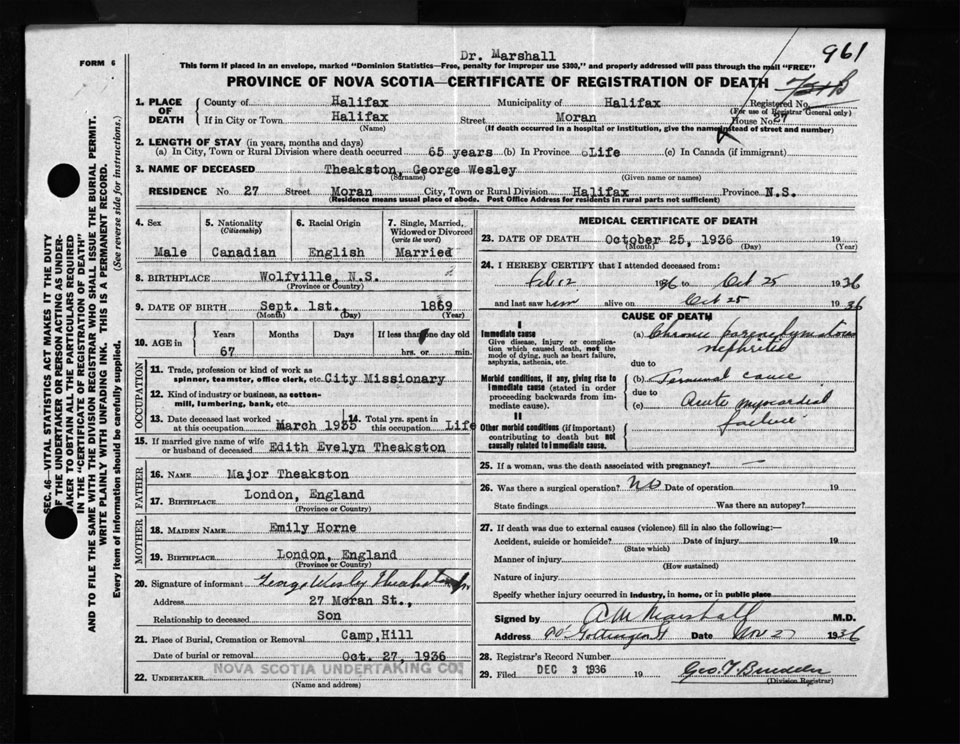 Dr. Marshall
961
FORM 6
This form if placed in an envelope, marked "Dominion Statistics—Free, penalty for improper use $300," and properly addressed will pass through the mail "FREE"
PROVINCE OF NOVA SCOTIA—CERTIFICATE OF REGISTRATION OF DEATH
1. PLACE OF DEATH
County of Halifax Municipality of Halifax Registered No.
(For use of Registrar General only)
If in City or Town Halifax Street Moran House No. 27
(Name) (If death occurred in a hospital or institution, give the name instead of street and number)
2. LENGTH OF STAY (in years, months and days)
(a) In City, Town or Rural Division where death occurred 65 years (b) In Province Life (c) In Canada (if immigrant)
3. NAME OF DECEASED Theakston, George Wesley
(Surname) (Given name or names)
RESIDENCE No. 27 Street Moran City, Town or Rural Division Halifax Province N.S.
(Residence means usual place of abode. Post Office Address for residents in rural parts not sufficient)
4. Sex Male
5. Nationality (Citizenship) Canadian
6. Racial Origin English
7. Single, Married, Widowed or Divorced (write the word) Married
8. BIRTHPLACE Wolfville, N.S.
(Province or Country)
9. DATE OF BIRTH Sept. 1st. 1869
(Month) (Day) (Year)
10. AGE in Years 67 Months Days If less than one day old hrs. or min.
OCCUPATION
11. Trade, profession or kind of work as spinner, teamster, office clerk, etc. City Missionary
12. Kind of industry or business, as cotton-mill, lumbering, bank, etc.
13. Date deceased last worked at this occupation March 1935
14. Total yrs. spent in this occupation Life
15. If married give name of wife or husband of deceased Edith Evelyn Theakston
FATHER
16. NAME Major Theakston
17. BIRTHPLACE London, England
(Province or Country)
MOTHER
18. MAIDEN NAME Emily Horne
19. BIRTHPLACE London, England
(Province or Country)
20. Signature of informant George Wesley Theakston Jr.
Address 27 Moran St.,
Relationship to deceased Son
21. Place of Burial, Cremation or Removal Camp Hill
Date of burial or removal Oct. 27, 1936
NOVA SCOTIA UNDERTAKING CO.
22. UNDERTAKER
(Name and address)
MEDICAL CERTIFICATE OF DEATH
23. DATE OF DEATH October 25, 1936 19
(Month) (Day) (Year)
24. I HEREBY CERTIFY that I attended deceased from:
Feb 12 1936 to Oct 25 1936
and last saw him alive on Oct 25 1936
CAUSE OF DEATH
I
Immediate cause
Give disease, injury or complication which caused death, not the mode of dying, such as heart failure, asphyxia, asthenia, etc.
(a) Chronic parenchymatous nephritis
due to
Morbid conditions, if any, giving rise to immediate cause (stated in order proceeding backwards from immediate cause).
(b) Terminal cause
due to
(c) Acute myocardial failure
II
Other morbid conditions (if important) contributing to death but not causally related to immediate cause.
25. If a woman, was the death associated with pregnancy? —
26. Was there a surgical operation? No Date of operation 19
State findings Was there an autopsy?
27. If death was due to external causes (violence) fill in also the following:—
Accident, suicide or homicide? Date of injury 19
(State which)
Manner of injury
(How sustained)
Nature of injury
Specify whether injury occurred in industry, in home, or in public place
Signed by A M Marshall M.D.
Address Gottingen St Date Nov 2 1936
28. Registrar's Record Number
29. Filed DEC 3 1936 19 Geo. T. Bundell
(Division Registrar)
SEC. 46—VITAL STATISTICS ACT MAKES IT THE DUTY
OF THE UNDERTAKER OR PERSON ACTING AS UNDER-
TAKER TO OBTAIN ALL THE PARTICULARS REQUIRED
IN THE "CERTIFICATE OF REGISTRATION OF DEATH"
AND TO FILE THE SAME WITH THE DIVISION REGISTRAR WHO SHALL ISSUE THE BURIAL PERMIT.
WRITE PLAINLY WITH UNFADING INK. THIS IS A PERMANENT RECORD.
Every item of information should be carefully supplied. (See reverse side for instructions.)